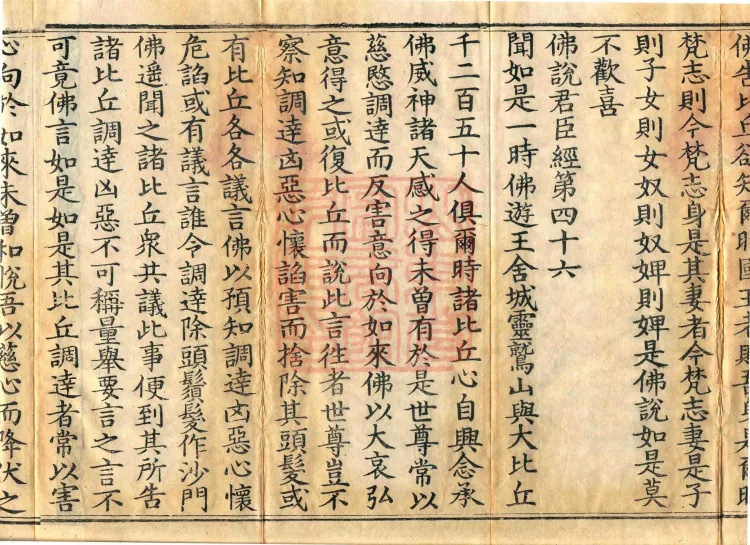 佛告比丘欲知爾時國王者則吾身是爾時
梵志則今梵志身是其妻者今梵志妻是子
則子女則女奴則奴婢則婢是佛說如是莫
不歡喜
佛說君臣經第四十六
聞如是一時佛遊王舍城靈鷲山與大比丘
千二百五十人俱爾時諸比丘心自興念承
佛威神諸天感之得未曾有於是世尊常以
慈愍調達而反害意向於如來佛以大哀弘
意得之或復比丘而說此言徃者世尊豈不
察知調達凶惡心懷諂害而捨除其頭髮或
有比丘各各議言佛以預知調達凶惡心懷
危諂或有議言誰令調達除頭鬚髮作沙門
佛遙聞之諸比丘衆共議此事便到其所告
諸比丘調達凶惡不可稱量舉要言之言不
可竟佛言如是如是其比丘調達者常以害
心向於如來未曾和悅吾以慈心而降伏之